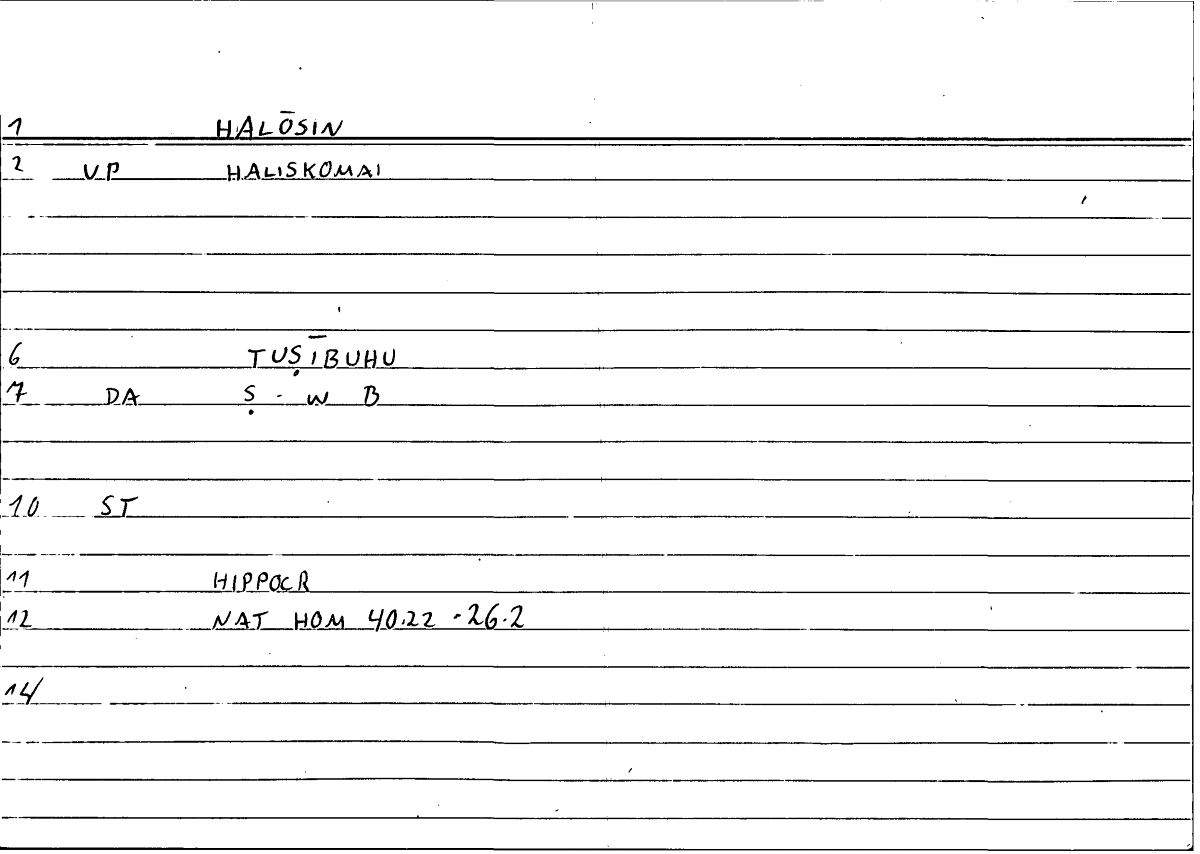 1 HALŌSIN
2 VP HALISKOMAI
6 TUṢĪBUHU
7 DA Ṣ - W B
10 ST
11 HIPPOCR
12 NAT HOM 40.22 - 26.2
14